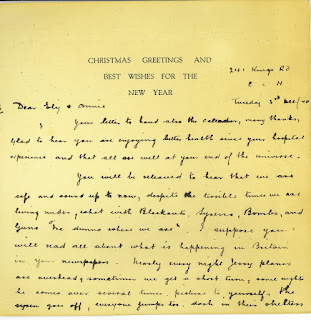 CHRISTMAS GREETINGS AND
BEST WISHES FOR THE
NEW YEAR
241 Kings Rd
C. H
Tuesday 3rd Dec/40
Dear & Annie
Your letter to hand also the calendar, many thanks,
Glad to hear you are enjoying better health since your hospital
experience and that all are well at your end of the universe.
You will be released to hear that we are
safe and sound up to now, despite the terrible times we are
living under, what with Blackouts, Syrens, Bombs, and
Guns "We dunno where we are". I suppose you
will read all about what is happening in Britain
in your newspapers. Nearly every night Jerry planes
are overhead, sometimes we get a short turn, some nights
he comes over several times, picture to yourself, the
syren goes off, everyone jumps to, dash in their shelters